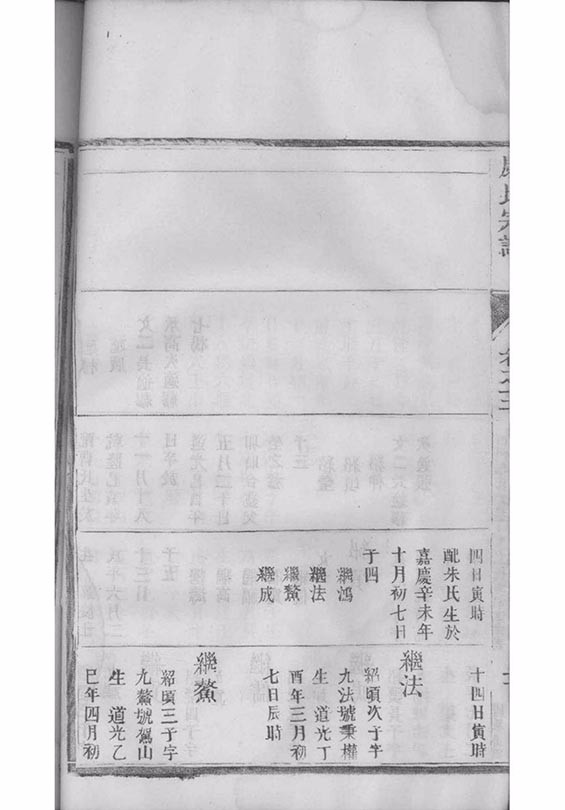 氏宗譜
卷之三
四日寅時
配朱氏生於
嘉慶辛未年
十月初七日
子四
繼鴻
繼法
繼鰲
繼成
十四日寅時
繼法
紹頃次子字
九法號秉權
生道光丁
酉年三月初
七日辰時
繼鰲
紹頃三子字
九鰲號駕山
生道光乙
巳年四月初